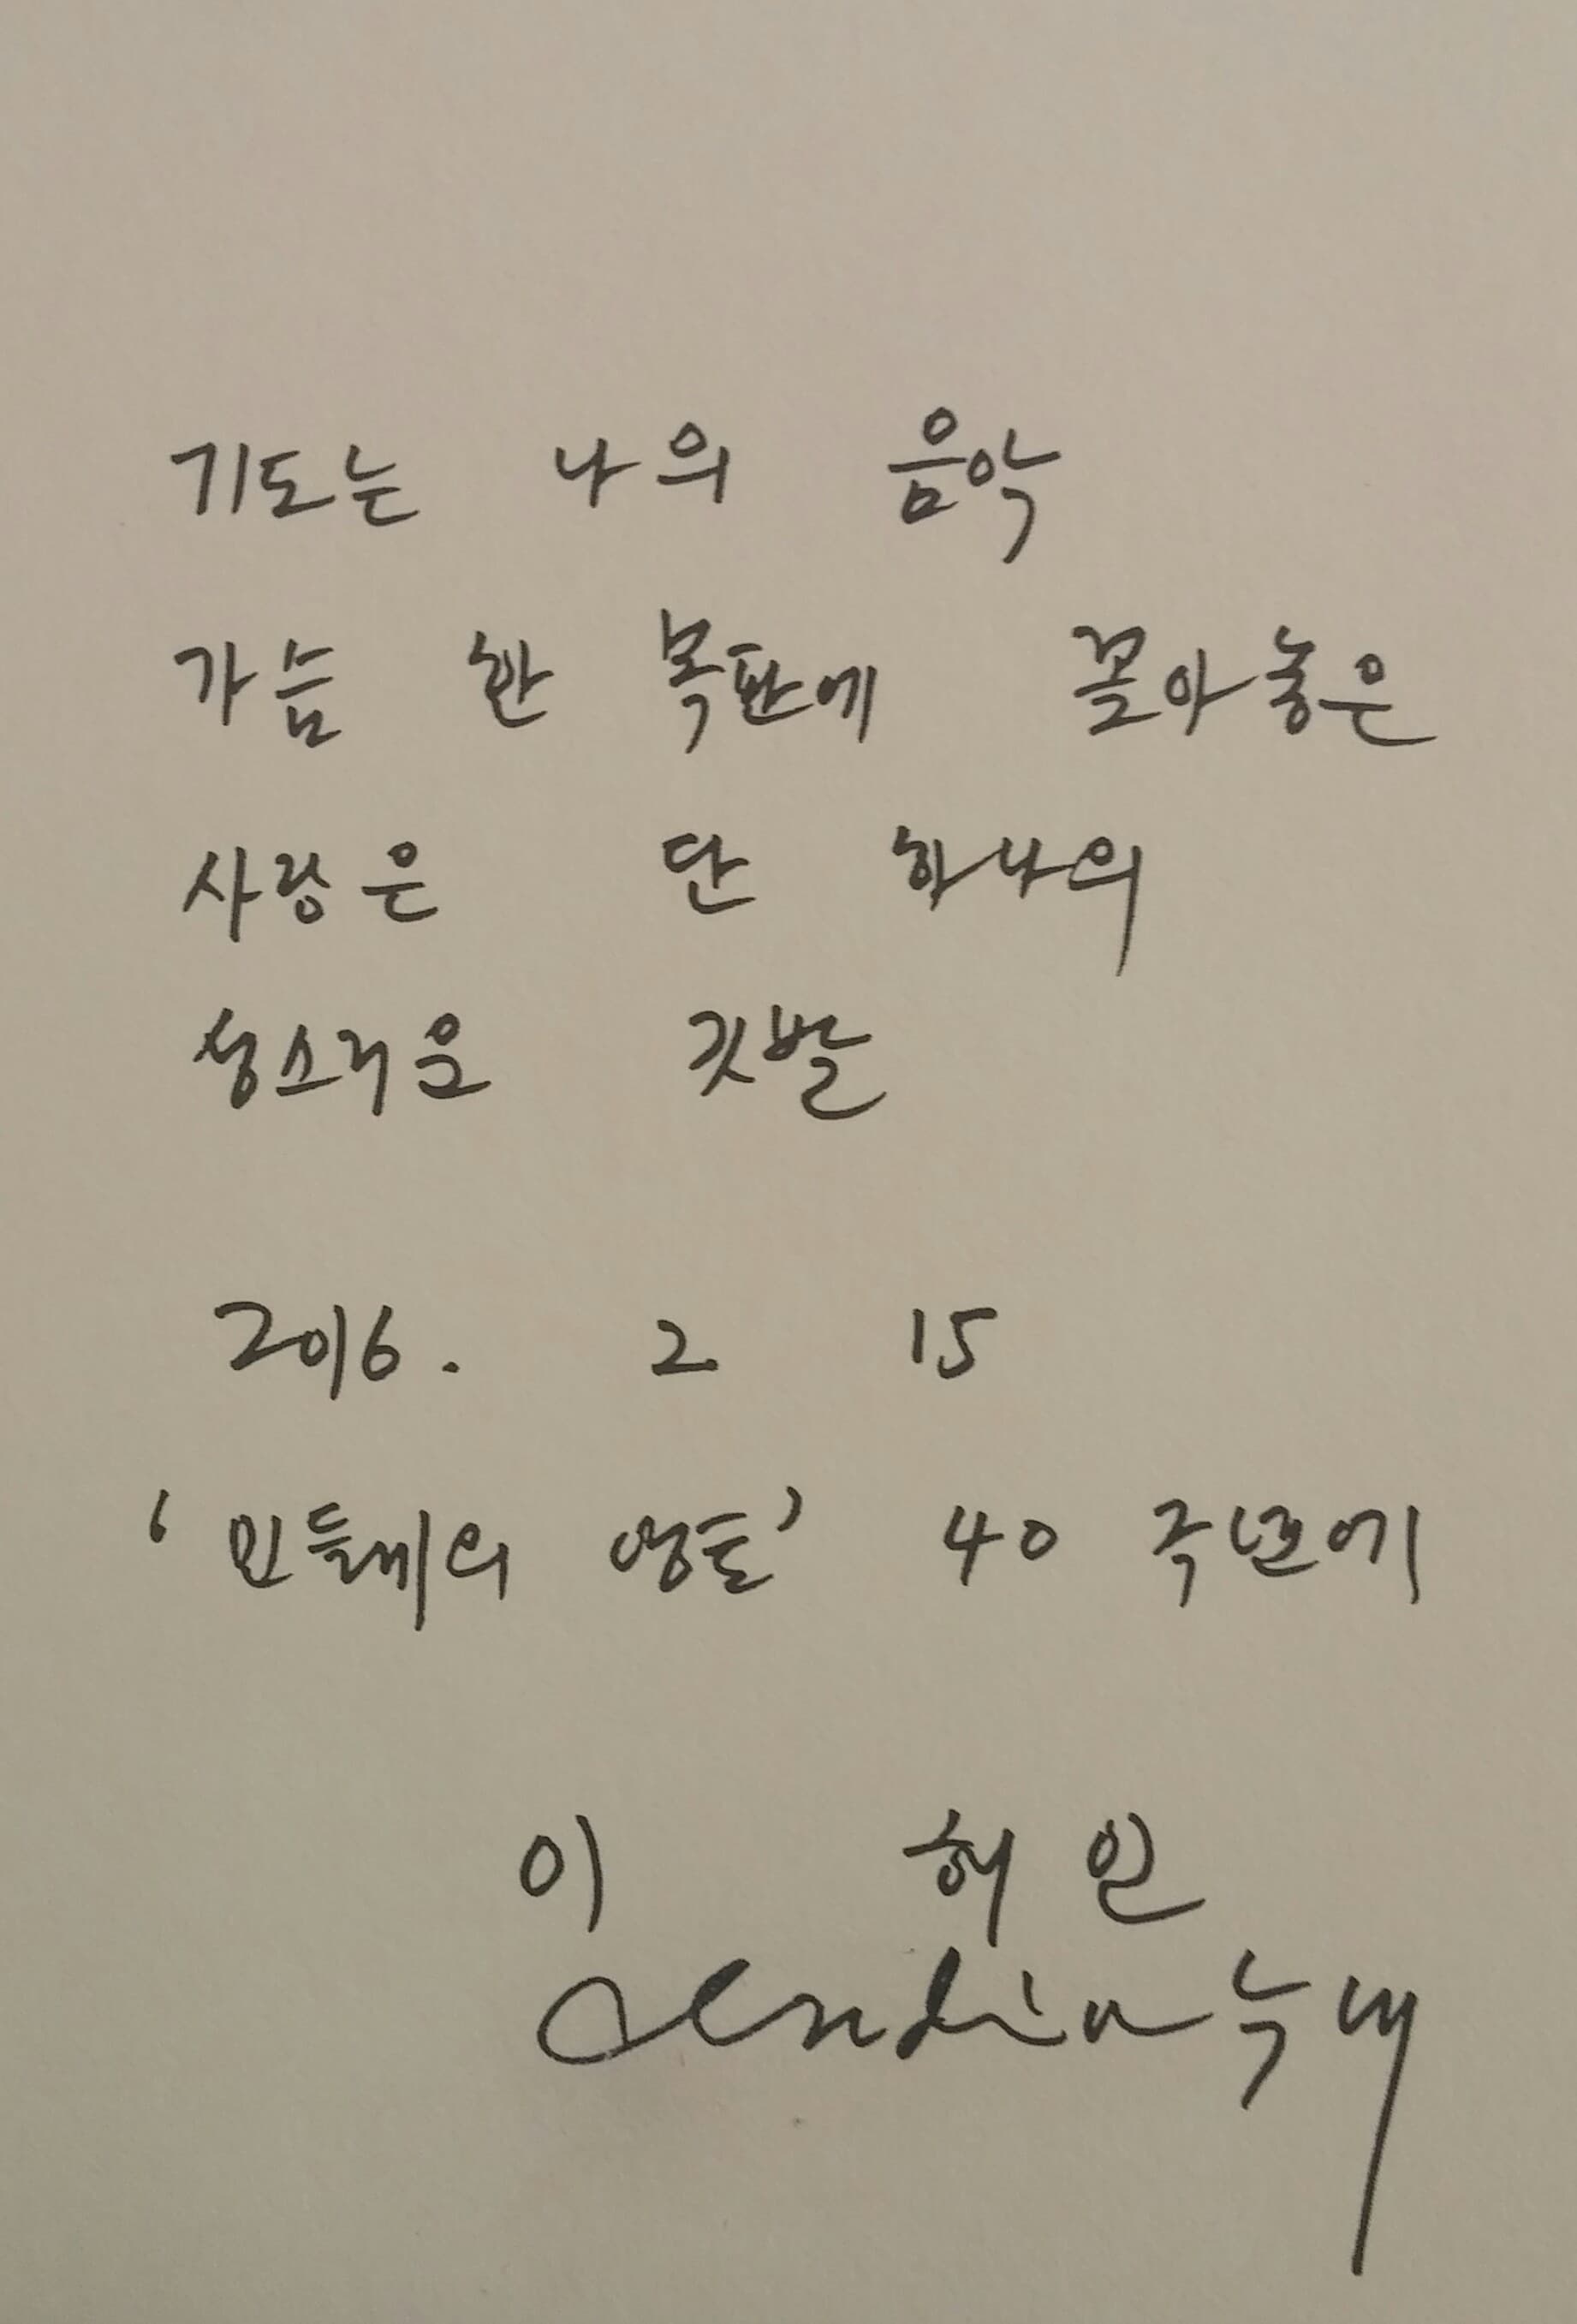 기도는 나의 음악
가슴 한 복판에 꽂아놓은
사랑은 단 하나의
성스러운 깃발
2016. 2 15
'민들레의 영토' 40 주년에
이 해인
수녀